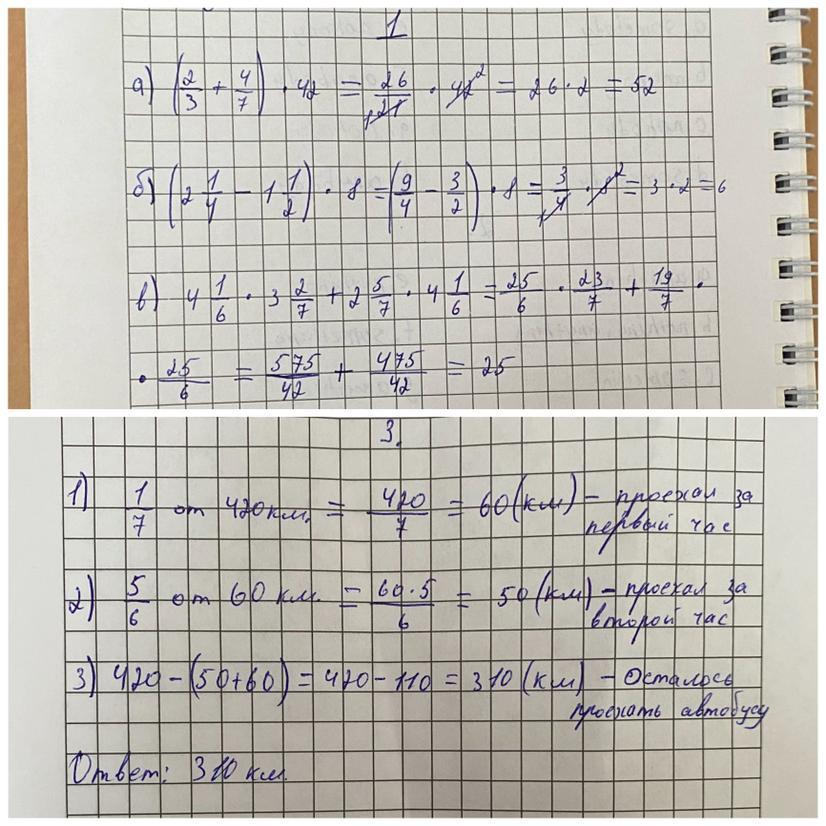 1
а) (2/3 + 4/7) · 42 = 26/21 · 42² = 26·2 = 52
б) (2 1/4 − 1 1/2) · 8 = (9/4 − 3/2) · 8 = 3/4 · 8² = 3·2 = 6
в) 4 1/6 · 3 2/7 + 2 5/7 · 4 1/6 = 25/6 · 23/7 + 19/7 ·
· 25/6 = 575/42 + 475/42 = 25
3.
1) 1/7 от 420км. = 420/7 = 60(км) – проехал за
первый час
2) 5/6 от 60 км. = 60·5/6 = 50(км) – проехал за
второй час
3) 420 − (50+60) = 420 − 110 = 310 (км) – Осталось
проехать автобусу
Ответ: 310 км.